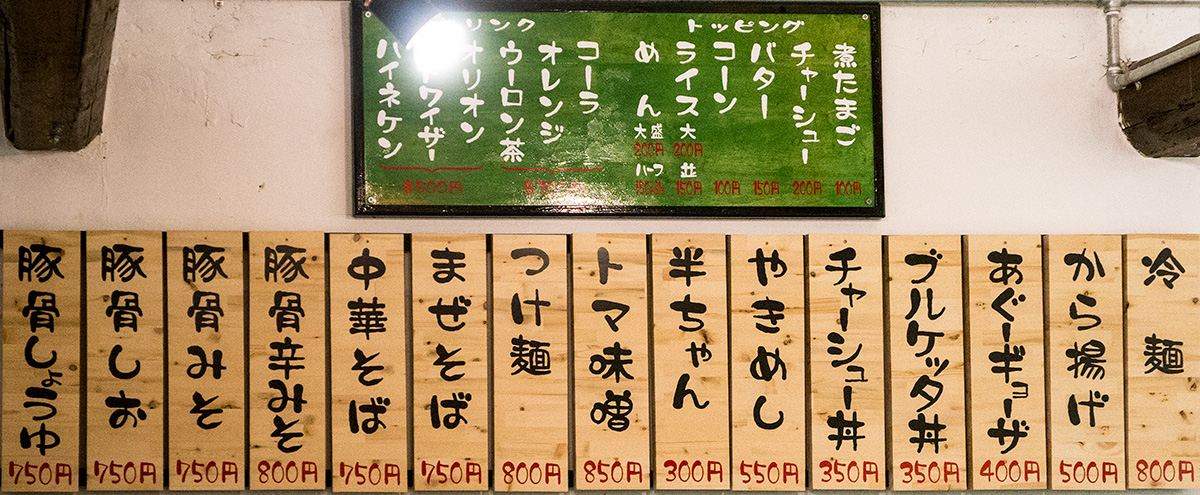 トッピング
煮たまご
100円
チャーシュー
200円
バター
150円
コーン
100円
ライス
大
200円
並
150円
めん
大盛
200円
ハーフ
コーラ
オレンジ
ウーロン茶
オリオン
ハイネケン
500円
冷麺
800円
から揚げ
500円
あぐーギョーザ
400円
ブルケッタ丼
350円
チャーシュー丼
350円
やきめし
550円
半ちゃん
300円
トマ味噌
850円
つけ麺
800円
まぜそば
750円
中華そば
750円
豚骨辛みそ
800円
豚骨みそ
750円
豚骨しお
750円
豚骨しょうゆ
750円